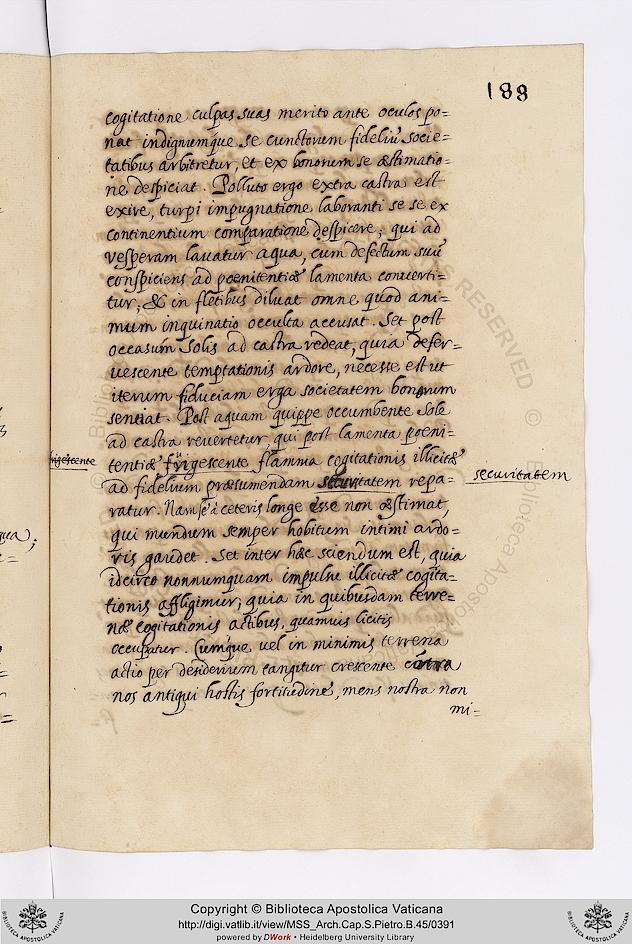 188
cogitatione culpas suas merito ante oculos po=
nat indignumque se cunctorum fideliũ socie=
tatibus arbitretur, et ex bonorum se æstimatio=
ne despiciat. Polluto ergo extra castra est
exire, turpi impugnatione laboranti se se ex
continentium comparatione despicere; qui ad
vesperam lauatur aqua, cum defectum suũ
conspiciens ad pœnitentiæ lamenta conuerti=
tur, & in fletibus diluat omne quod ani=
mum inquinatio occulta accusat. Set post
occasum Solis ad castra redeat, quia defer=
uescente temptationis ardore, necesse est ut
iterum fiduciam erga societatem bonorum
sentiat. Post aquam quippe occumbente Sole
ad castra reuertetur, qui post lamenta pœni=
tentiæ frigescente flamma cogitationis illicitæ
ad fidelium præsumendam securitatem repa=
securitatem
ratur. Nam se à ceteris longe esse non æstimat,
qui mundum semper hobitum intimi ardo=
ris gaudet. Set inter hæc sciendum est, quia
idcirco nonnumquam impulsu illicitæ cogita=
tionis affligimur, quia in quibusdam terre=
næ cogitationis actibus, quamuis licitis
occupatur. Cumque vel in minimis terrena
actio per desiderium tangitur crescente contra
nos antiqui hostis fortitudine, mens nostra non
mi=
Copyright © Biblioteca Apostolica Vaticana
http://digi.vatlib.it/view/MSS_Arch.Cap.S.Pietro.B.45/0391
powered by DWork • Heidelberg University Library